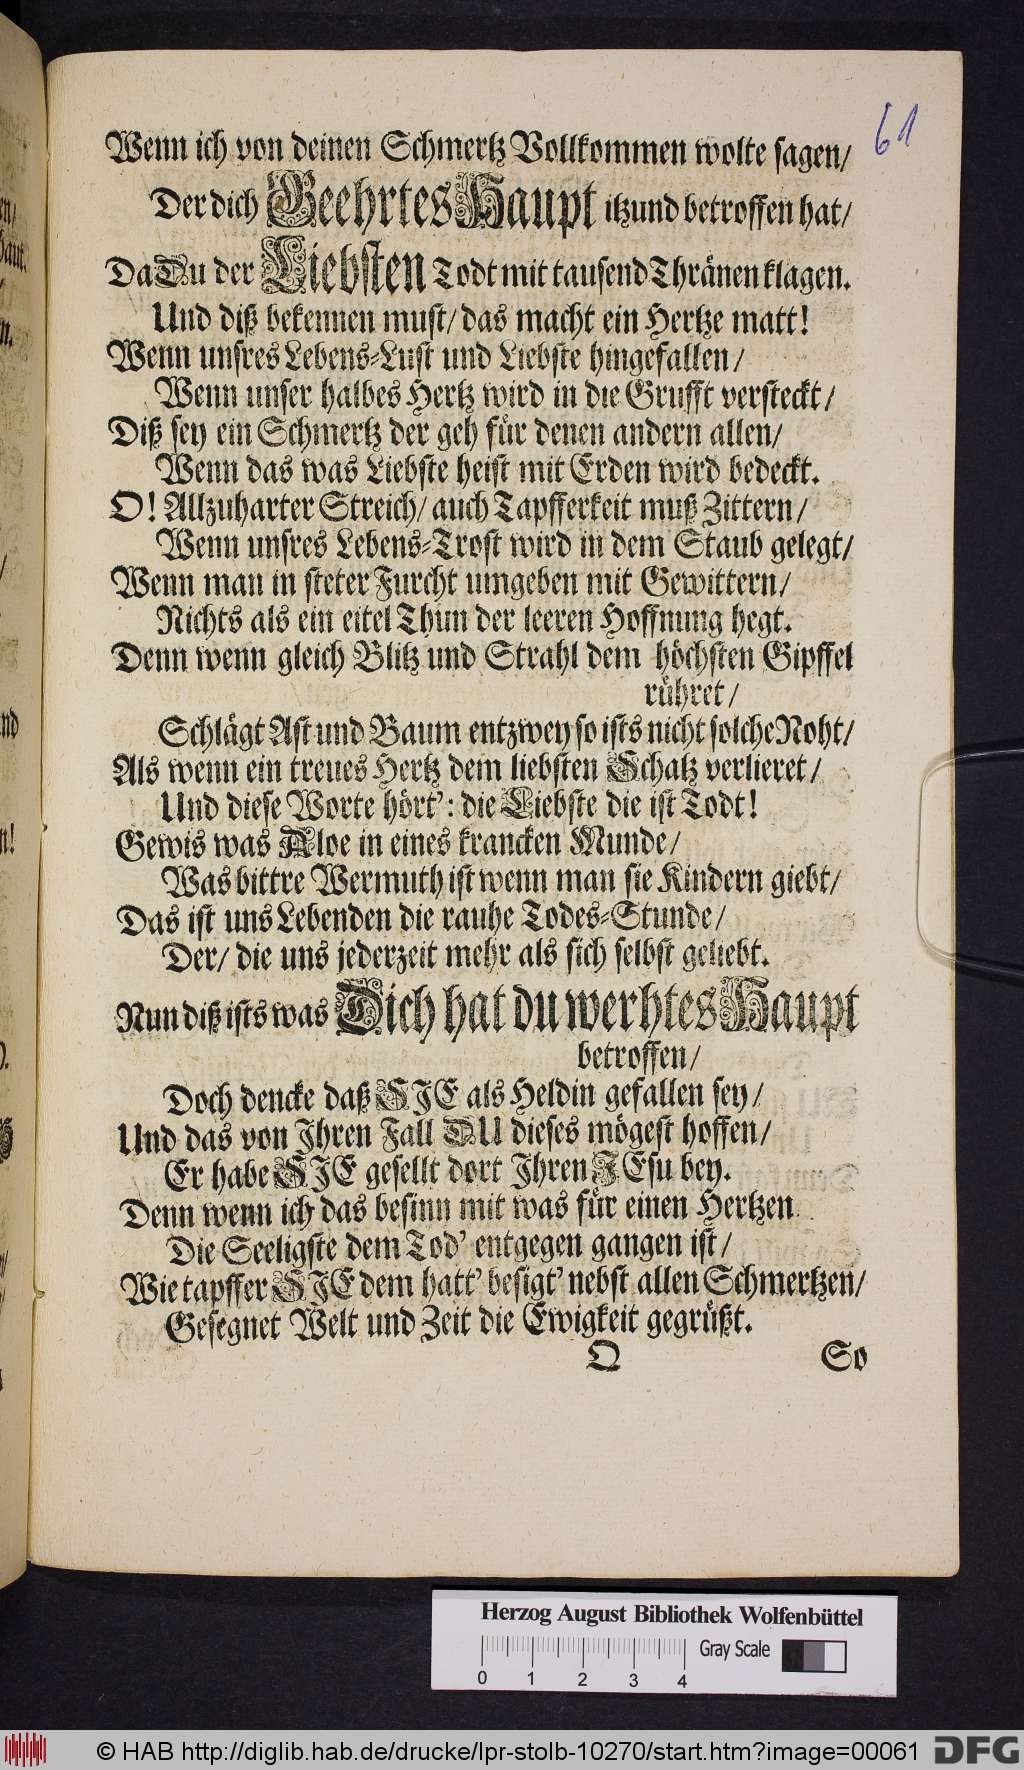 61
Wenn ich von deinen Schmertz Vollkommen wolte sagen/
Der dich Geehrtes Haupt itzund betroffen hat/
Da Du der Liebsten Todt mit tausend Thränen klagen.
Und diß bekennen must/ das macht ein Hertze matt!
Wenn unsres Lebens-Lust und Liebste hingefallen/
Wenn unser halbes Hertz wird in die Grufft versteckt/
Diß sey ein Schmertz der geh für denen andern allen/
Wenn das was Liebste heist mit Erden wird bedeckt.
O! Allzuharter Streich/ auch Tapfferkeit muß Zittern/
Wenn unsres Lebens-Trost wird in dem Staub gelegt/
Wenn man in steter Furcht umgeben mit Gewittern/
Nichts als ein eitel Thun der leeren Hoffnung hegt.
Denn wenn gleich Blitz und Strahl dem höchsten Gipffel
rühret/
Schlägt Ast und Baum entzwey so ists nicht solche Noht/
Als wenn ein treues Hertz dem liebsten Schatz verlieret/
Und diese Worte hört': die Liebste die ist Todt!
Gewis was Aloe in eines krancken Munde/
Was bittre Wermuth ist wenn man sie Kindern giebt/
Das ist uns Lebenden die rauhe Todes-Stunde/
Der/ die uns jederzeit mehr als sich selbst geliebt.
Nun diß ists was Dich hat du werhtes Haupt
betroffen/
Doch dencke daß SIE als Heldin gefallen sey/
Und das von Ihren Fall DU dieses mögest hoffen/
Er habe SIE gesellt dort Ihren JEsu bey.
Denn wenn ich das besinn mit was für einen Hertzen
Die Seeligste dem Tod' entgegen gangen ist/
Wie tapffer SIE dem hatt' besigt' nebst allen Schmertzen/
Gesegnet Welt und Zeit die Ewigkeit gegrüßt.
O So
Herzog August Bibliothek Wolfenbüttel
Gray Scale
0 1 2 3 4
© HAB http://diglib.hab.de/drucke/lpr-stolb-10270/start.htm?image=00061
DFG